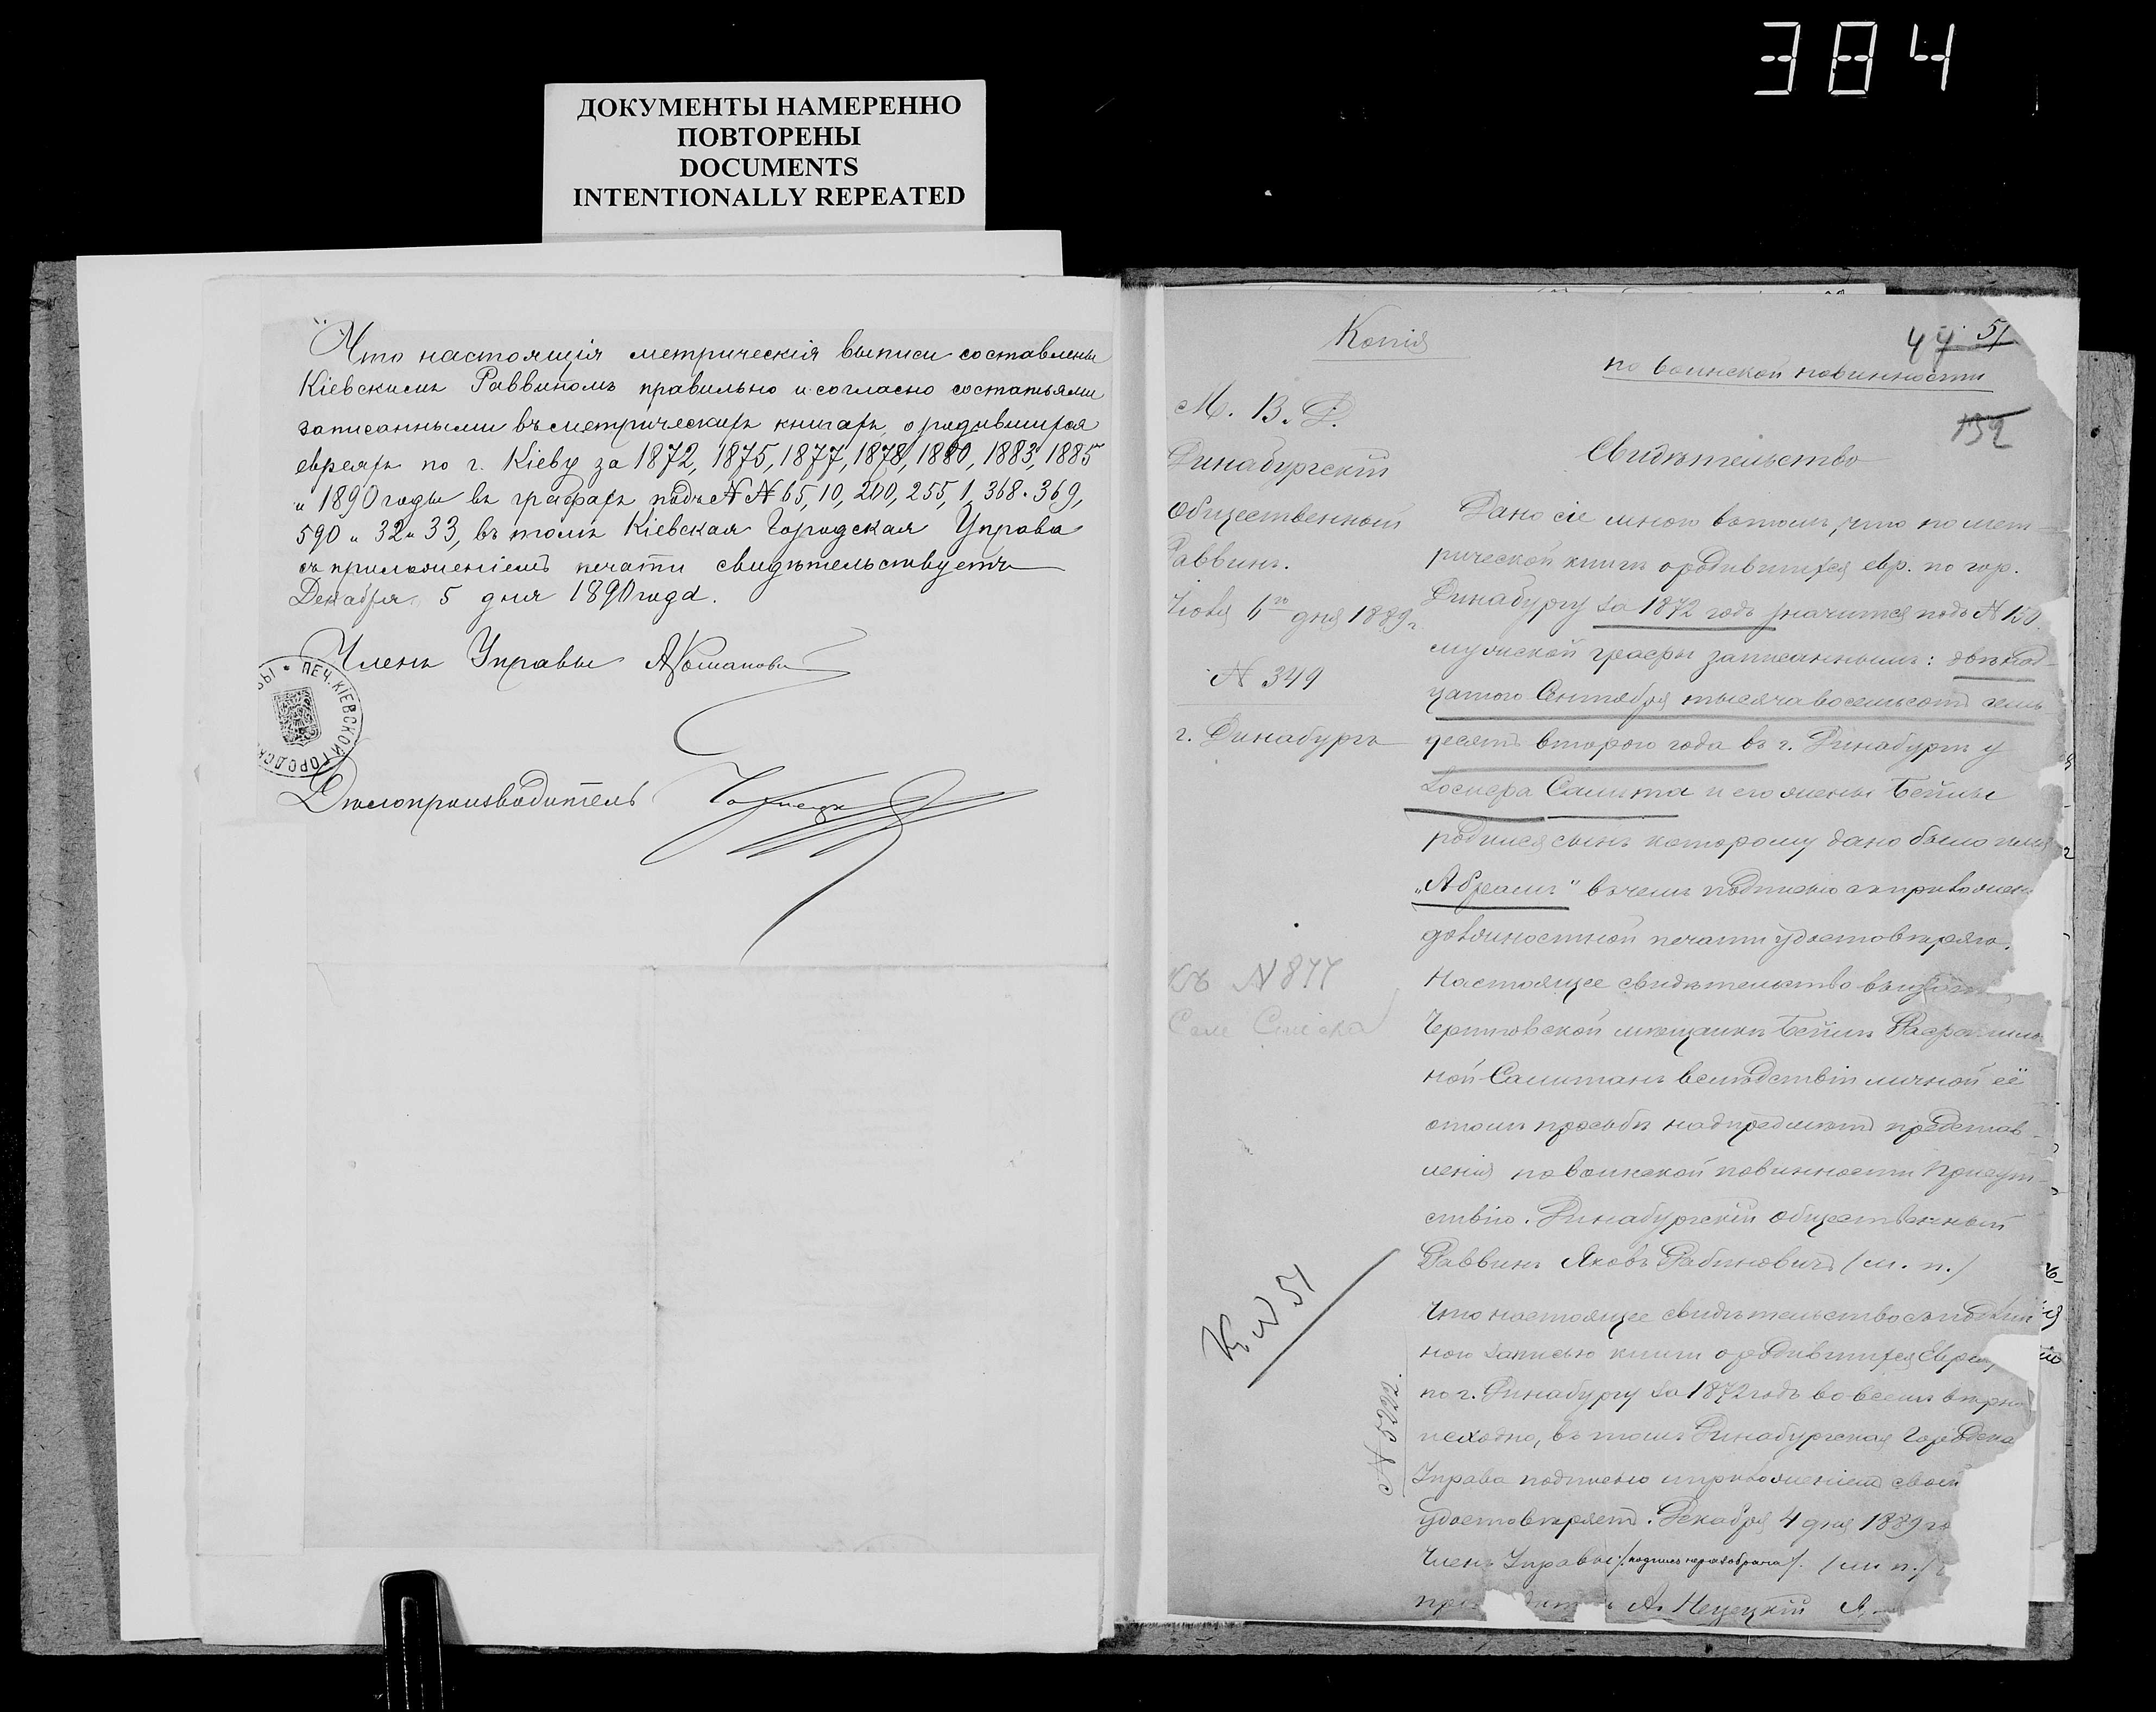 384
ДОКУМЕНТЫ НАМЕРЕННО
ПОВТОРЕНЫ
DOCUMENTS
INTENTIONALLY REPEATED
Что настоящія метрическія выписи составлены
Кіевскимъ Раввиномъ правильно и согласно со статьями
записанными въ метрическихъ книгахъ о родившихся
евреяхъ по г. Кіеву за 1872, 1875, 1877, 1878, 1880, 1883, 1885
и 1890 годы въ графахъ подъ № № 65, 10, 200, 255, 1, 368. 369,
590 и 32 и 33, въ томъ Кіевская Городская Управа
съ приложеніемъ печати свидѣтельствуетъ
Декабря 5 дня 1890 года.
Членъ Управы
ПЕЧ. КІЕВСКОЙ ГОРОДСК
Дѣлопроизводитель
Копія
44 51
по воинской повинности
152
М. В. Д.
Динабургскій
Общественный
Раввинъ.
Іюля 6го дня 1889 г.
№ 349
г. Динабургъ
Свидѣтельство
Дано сіе мною въ томъ, что по мет-
рической книгѣ о родившихся евр. по гор.
Динабургу за 1872 годъ значится подъ №
мужской графы записаннымъ: двѣнад-
цатого Сентября тысяча восемьсотъ семь
десятъ второго года въ г. Динабургѣ у
и его жены Бейлы
родился сынъ которому дано было имя
„Абрамъ" въ чемъ подписью и приложен
должностной печати удостовѣряю.
Настоящее свидѣтельство
Черниговской мѣщанкѣ Бейлѣ
ной вслѣдствіи личной её
о томъ просьбѣ на предметъ представ-
ленія по воинской повинности Присут-
ствію. Динабургскій общественный
Раввинъ Яковъ Рабиновичъ (м. п.)
къ № 877
К № 51
№ 5222.
Что настоящее свидѣтельство съ подлин
ною записью книги о родившихся Евре
по г. Динабургу за 1872 годъ во всемъ вѣрно
исходно, въ томъ Динабургская Городска
Управа подписью и приложеніемъ своей
удостовѣряетъ. Декабря 4 дня 1889 го
Членъ Управы /подпись неразобрана/. (м. п.)